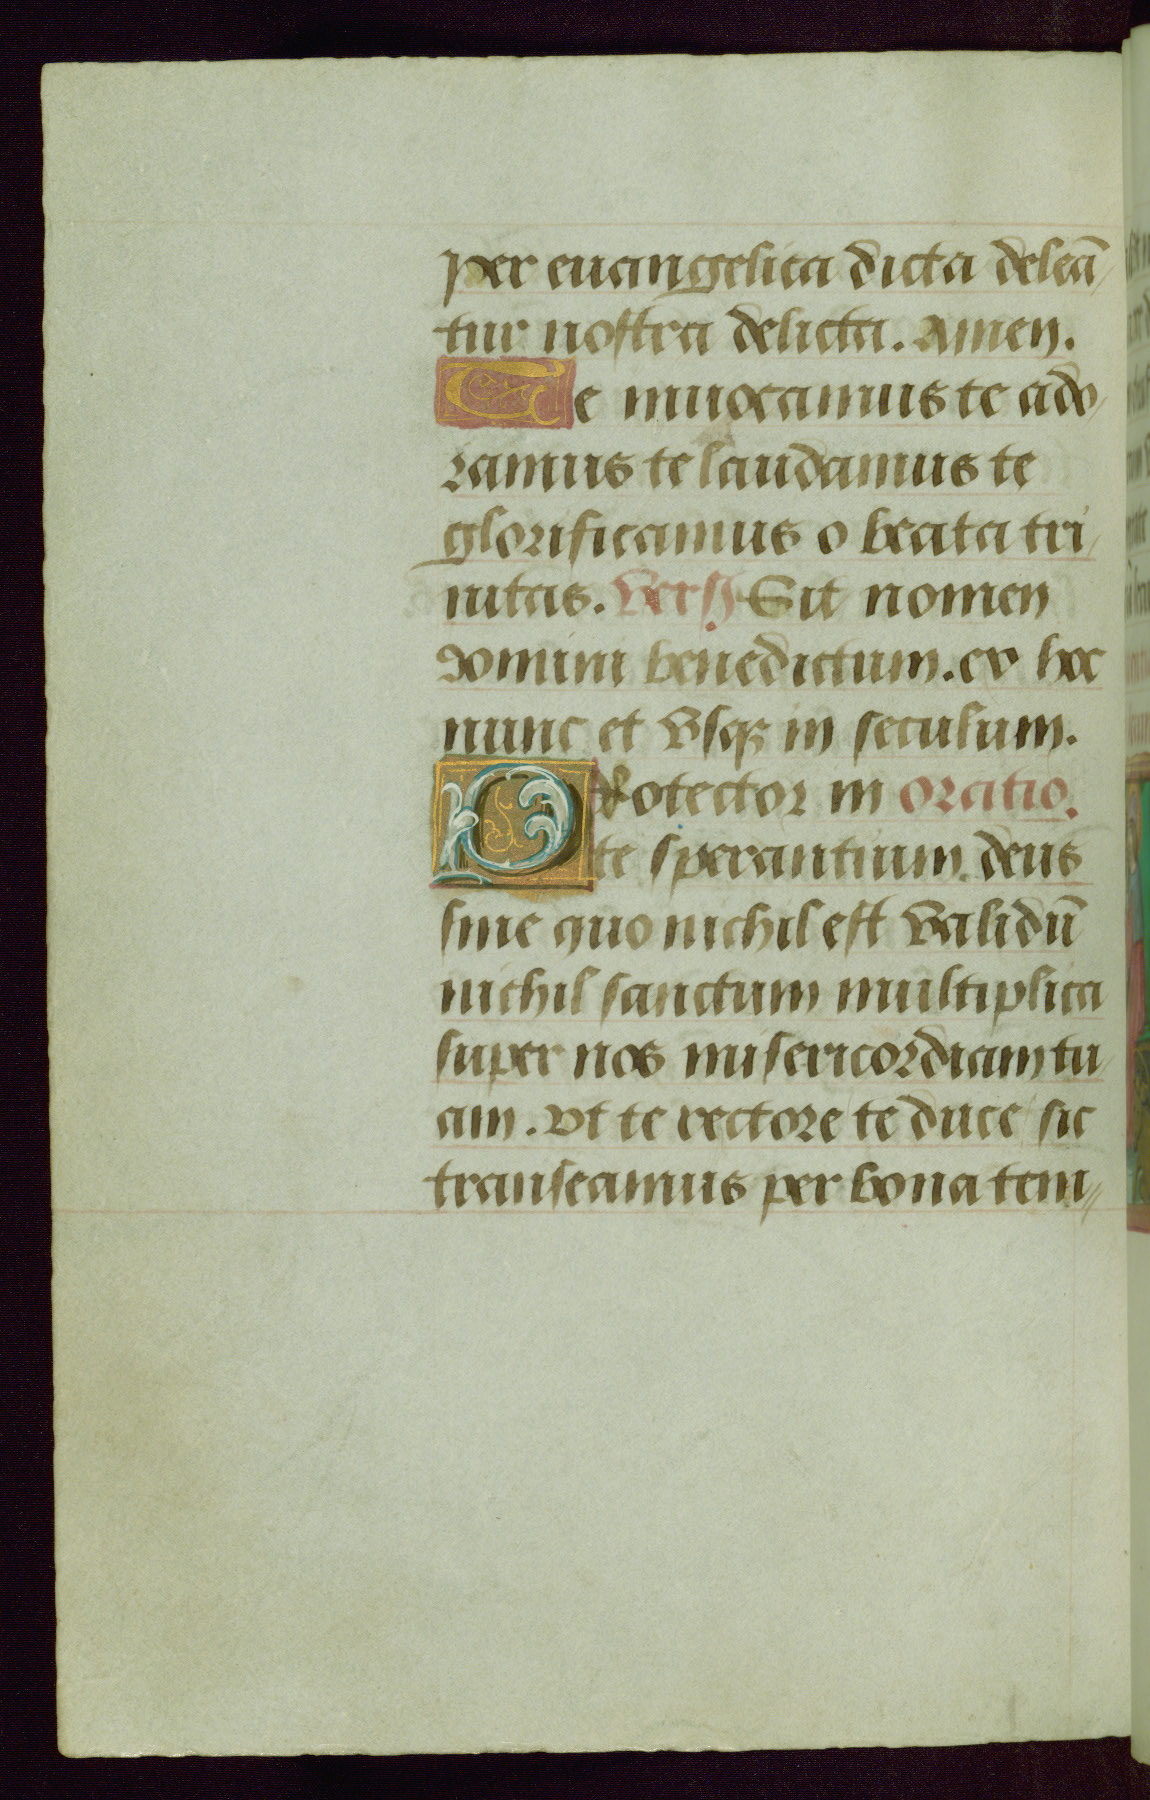 per euangelica dicta deleā
tur nostra delicta. Amen.
Te inuocamus te ado
ramus te laudamus te
glorificamus o beata tri
nitas. Vers̄ Sit nomen
domini benedictum. ex hoc
nunc et vsqꝫ in seculum.
Protector in Oratio.
te sperantium. deus
sine quo nichil est validū
nichil sanctum multiplica
super nos misericordiam tu
am. vt te rectore te duce sic
transeamus per bona tem